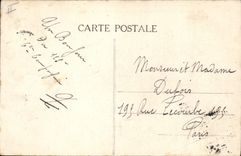 CARTE POSTALE
Un Bonjour
Du
Monsieur et Madame
Dubois
193 Rue Lecourbe 193
Paris